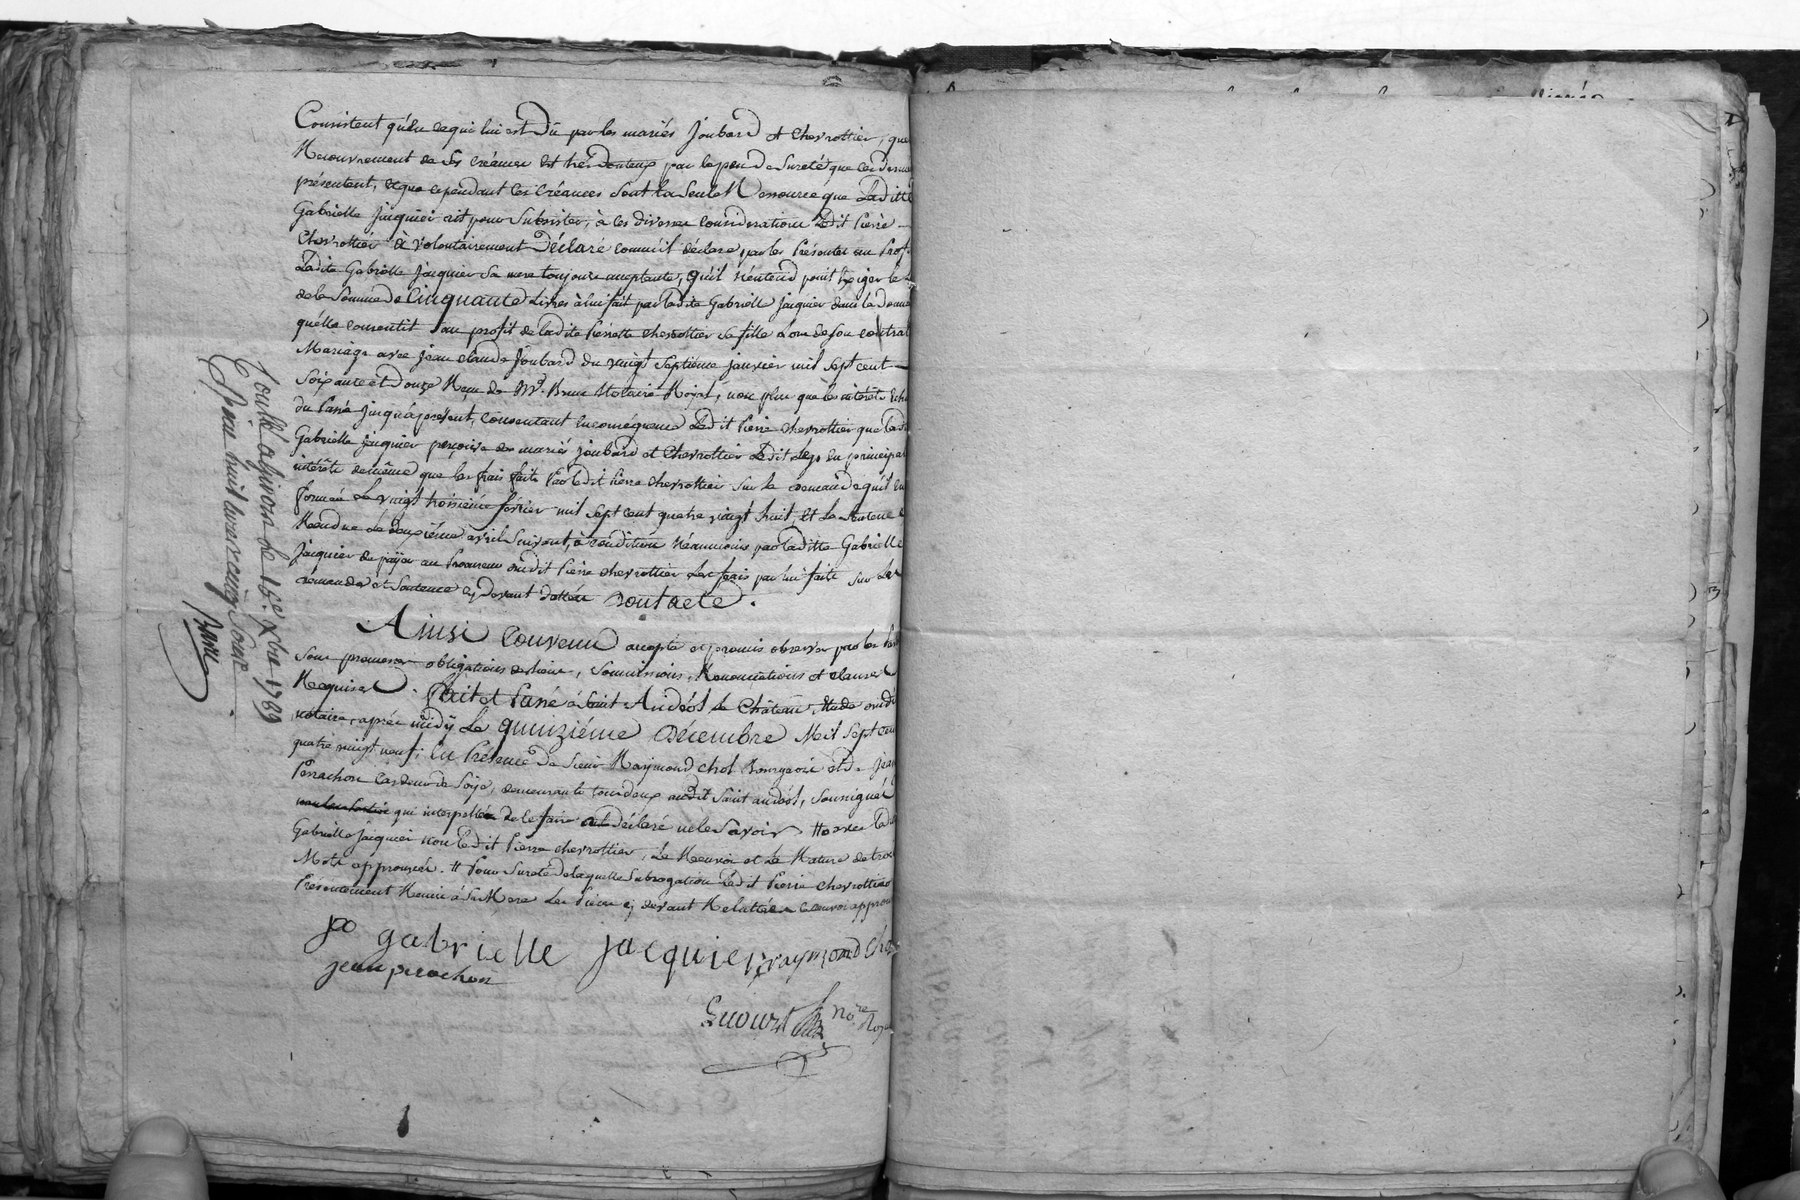 Consistent qu'en ce qui lui est Dû par les mariés Joubard et Chevrottier, que
Recouvrement de ses créances est très douteux par le peu de Sureté que ces derni
présentent, et que cependant ces Créances sont la Seule Ressource que Laditte
Gabrielle Jacquier ait pour Subsister, à ces diverses considerations Ledit Pierre
Chevrottier à volontairement Déclaré comme il déclare par les Présentes au Prof
Ladite Gabrielle Jacquier Sa mere toujours acceptante, qu'il n'entend point Exiger le L
de la Somme de Cinquante Livres à lui fait par ladite Gabrielle Jacquier dans la Dona
qu'elle consentit au profit de ladite Pierrette Chevrottier sa fille Lors de son contrat
Mariage avec Jean Claude Joubard du vingt Septieme janvier mil sept cent
Soixante et Douze Reçu de Me. Brun Notaire Royal, non plus que les intérêts Echu
du Passé jusqu'à présent, Consentant en conséquence Ledit Pierre Chevrottier que ladi
Gabrielle Jacquier perçoive des mariés Joubard et Chevrottier Ledit Legs en principal
intérêts de même que les frais faits Par ledit Pierre Chevrottier sur la demande qu'il en
formée Le vingt troisième février mil sept cent quatre vingt huit, et la Sentence
Rendue Le deuxième avril Suivant, à condition néanmoins par laditte Gabrielle
Jacquier de païer au Procureur dudit Pierre Chevrottier Les frais par lui faits sur Les
demandes et Sentence cy devant dattée dont acte.
Ainsi Convenu accepté et promis observer par les
Sous promesses obligations de biens, Soumissions, Renonciations et clauses
Requises. Fait et Passé à Saint Andéol le Château Etude dudit
notaire, après midy Le quinziéme Décembre Mil sept cent
quatre vingt neuf; En Présence de Sieur Raymond Chol Bourgeois et de Jean
Perrachon Cardeur de Soÿe, demeurants tous deux audit Saint Andéol, Sousignés
qui interpellée de le faire déclaré ne le Savoir. avec Ladite
Gabrielle Jacquier non Ledit Pierre Chevrottier, Le Renvoi et La Rature de trois
Mots approuvés. Pour Sureté de laquelle Subrogation Ledit Pierre Chevrottier
Présentement Remis à Sa Mere Les Pieces cy devant Relattées Renvoi approuvé
gabrielle jacquier raymond Cho
jean perachon
nore Roy
Contlé a givors Le 15e Xbre 1789